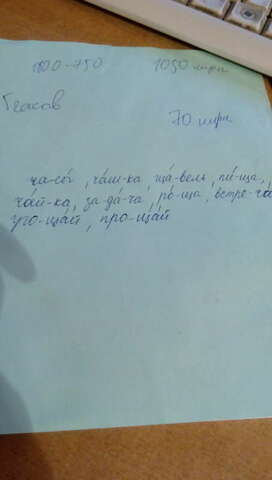 700-750 1050 мрп
70 мрп
ча-со́в, ча́ш-ка, ща-ве́ль, пи́-ща,
ча́й-ка, за-да́-ча, ро́-ща, встре́-ча
уго-ща́й, про-ща́й